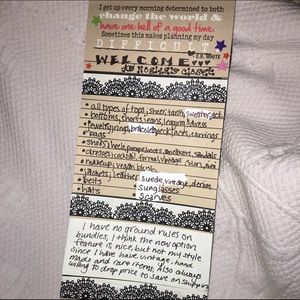 I get up every morning determined to both
change the world &
have one hell of a good time.
Sometimes this makes planning my day
DIFFICULT.
E.B. WHITE
WELCOME
TO closet
• all types of tops, sheer, tank, sweater,
• bottoms, shorts, jeans,
• jewelry, rings, bracelets, neck faces, earrings
• bags
• shoes, heels, boots, sandals
• dresses, cocktail, formal, vintage,
• makeup, vegan blush
• jackets, leather, suede, vintage, denim
• belts
• sunglasses
• hats
• scarves
I have no ground rules on
bundles, I think the new option
feature is nice, but not my style
since I have have vintage, hand
made and rare items. Also always
willing to drop price to save on shipping